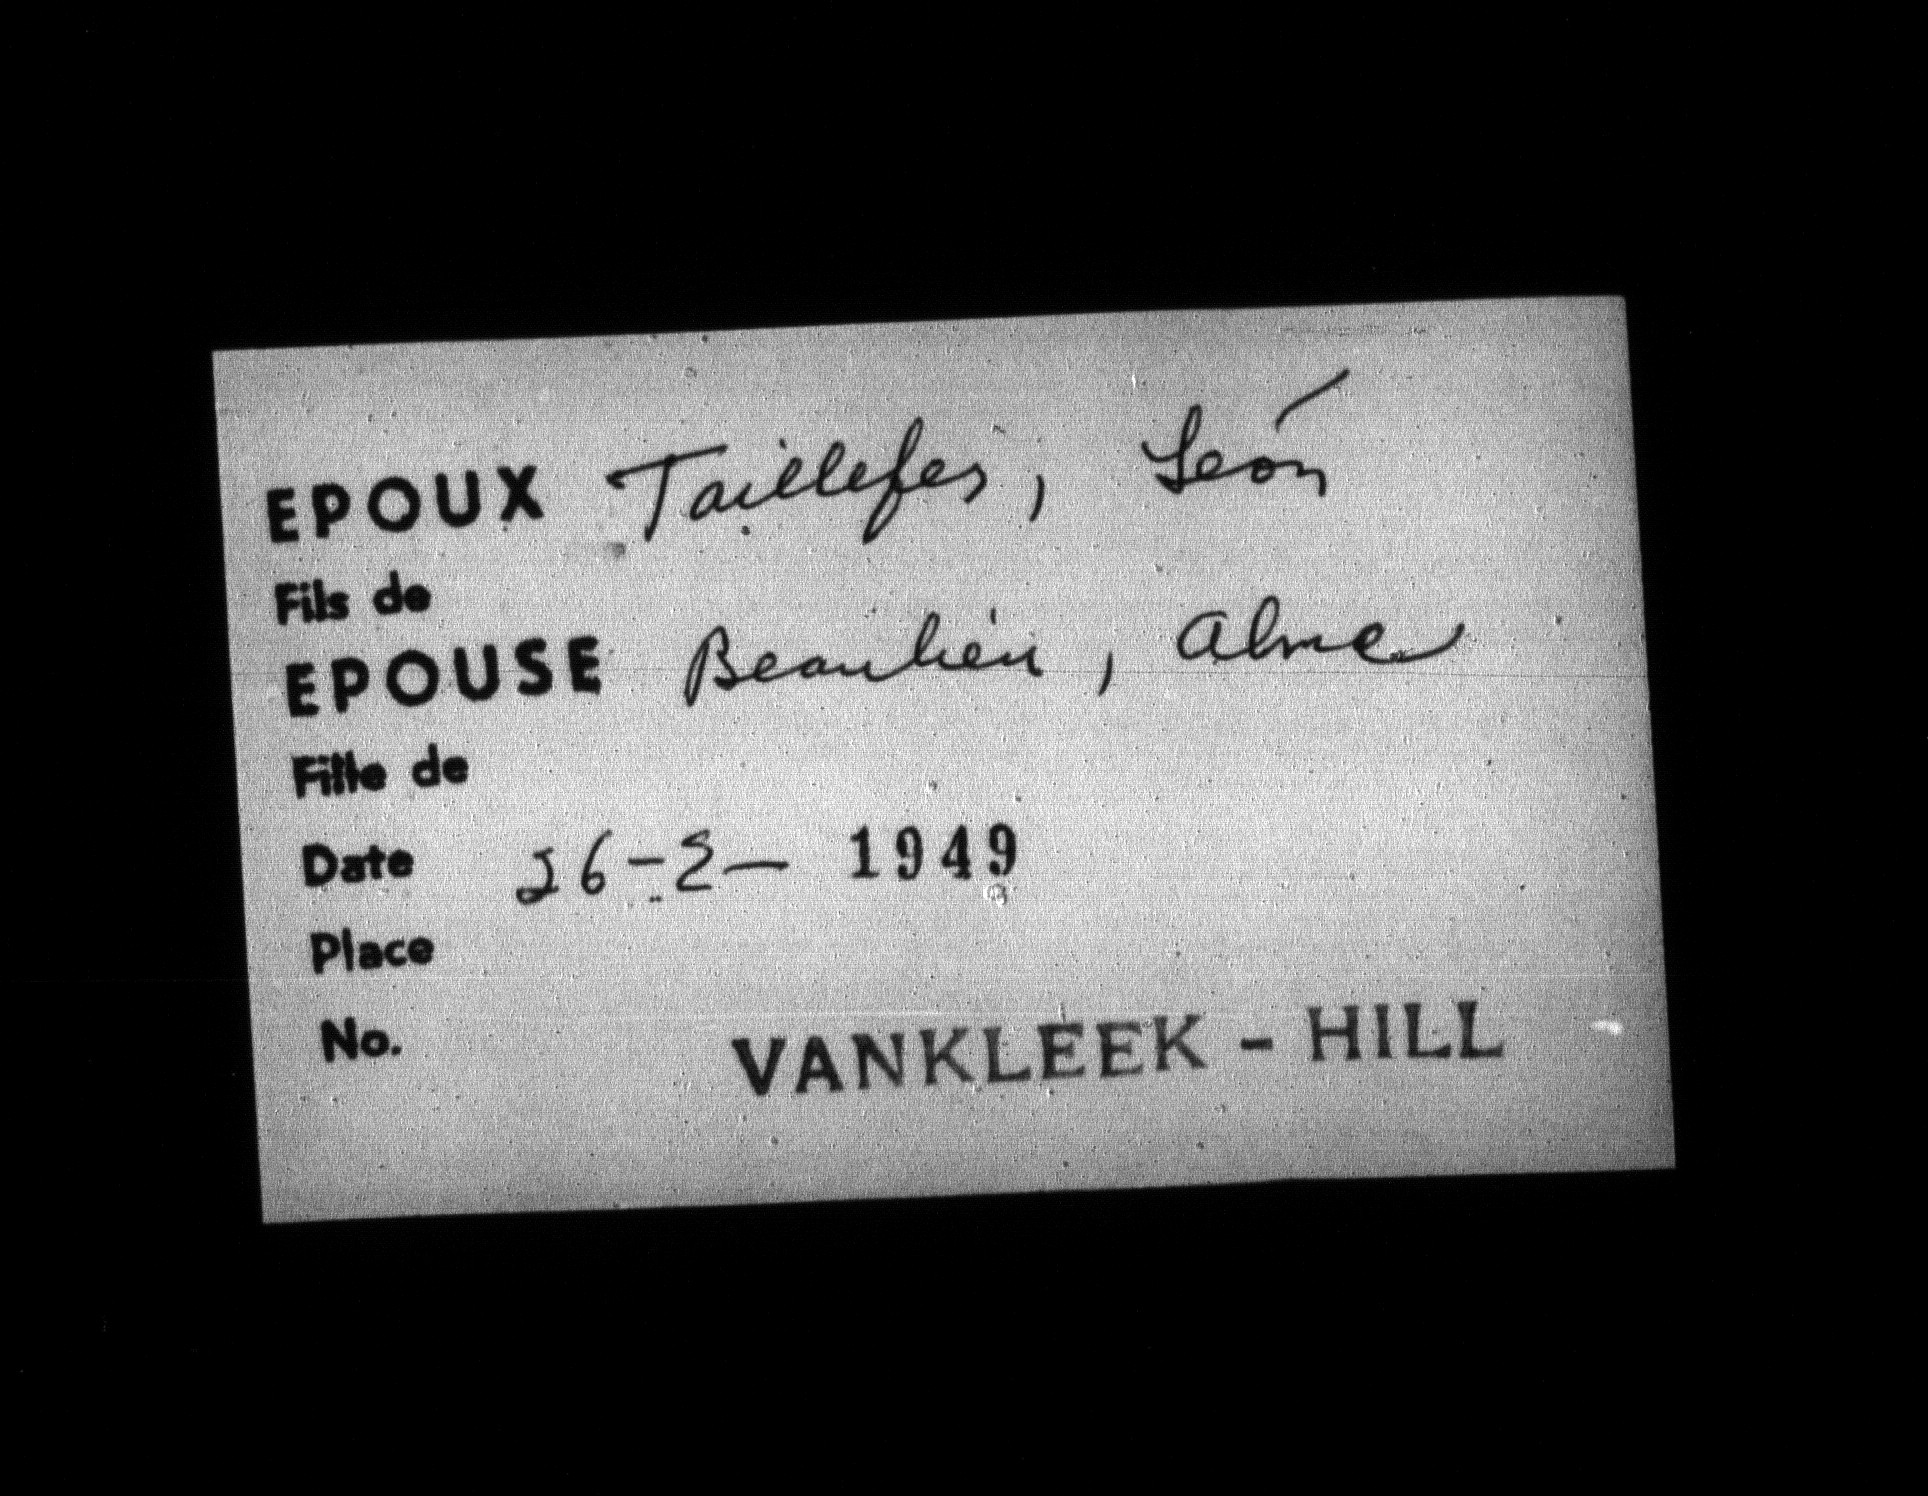 EPOUX Taillefer, Léon
Fils de
EPOUSE Beaulieu, Alma
Fille de
Date 26-2- 1949
Place
No.
VANKLEEK - HILL